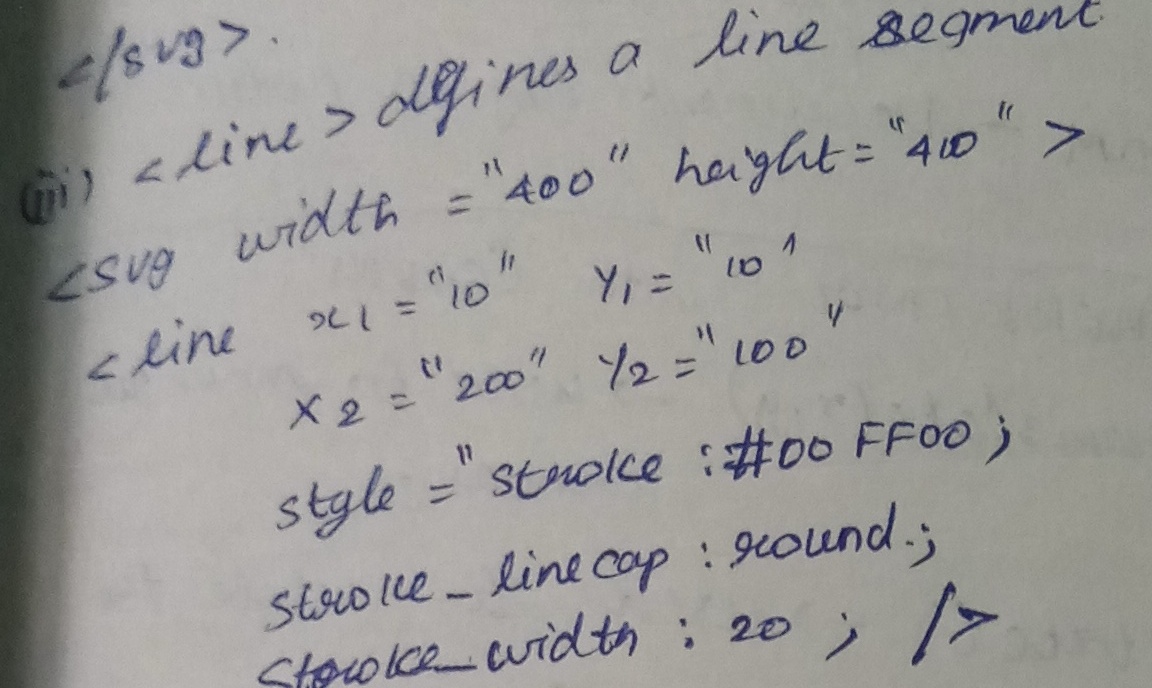 </svg>.
(iii) <line> defines a line segment
<svg width = "400" height = "410" >
<line x1 = "10" Y1 = "10"
X2 = "200" Y2 = "100"
style = "stroke : #00FF00 ;
stroke_linecap : round.;
stroke_width : 20 ; />